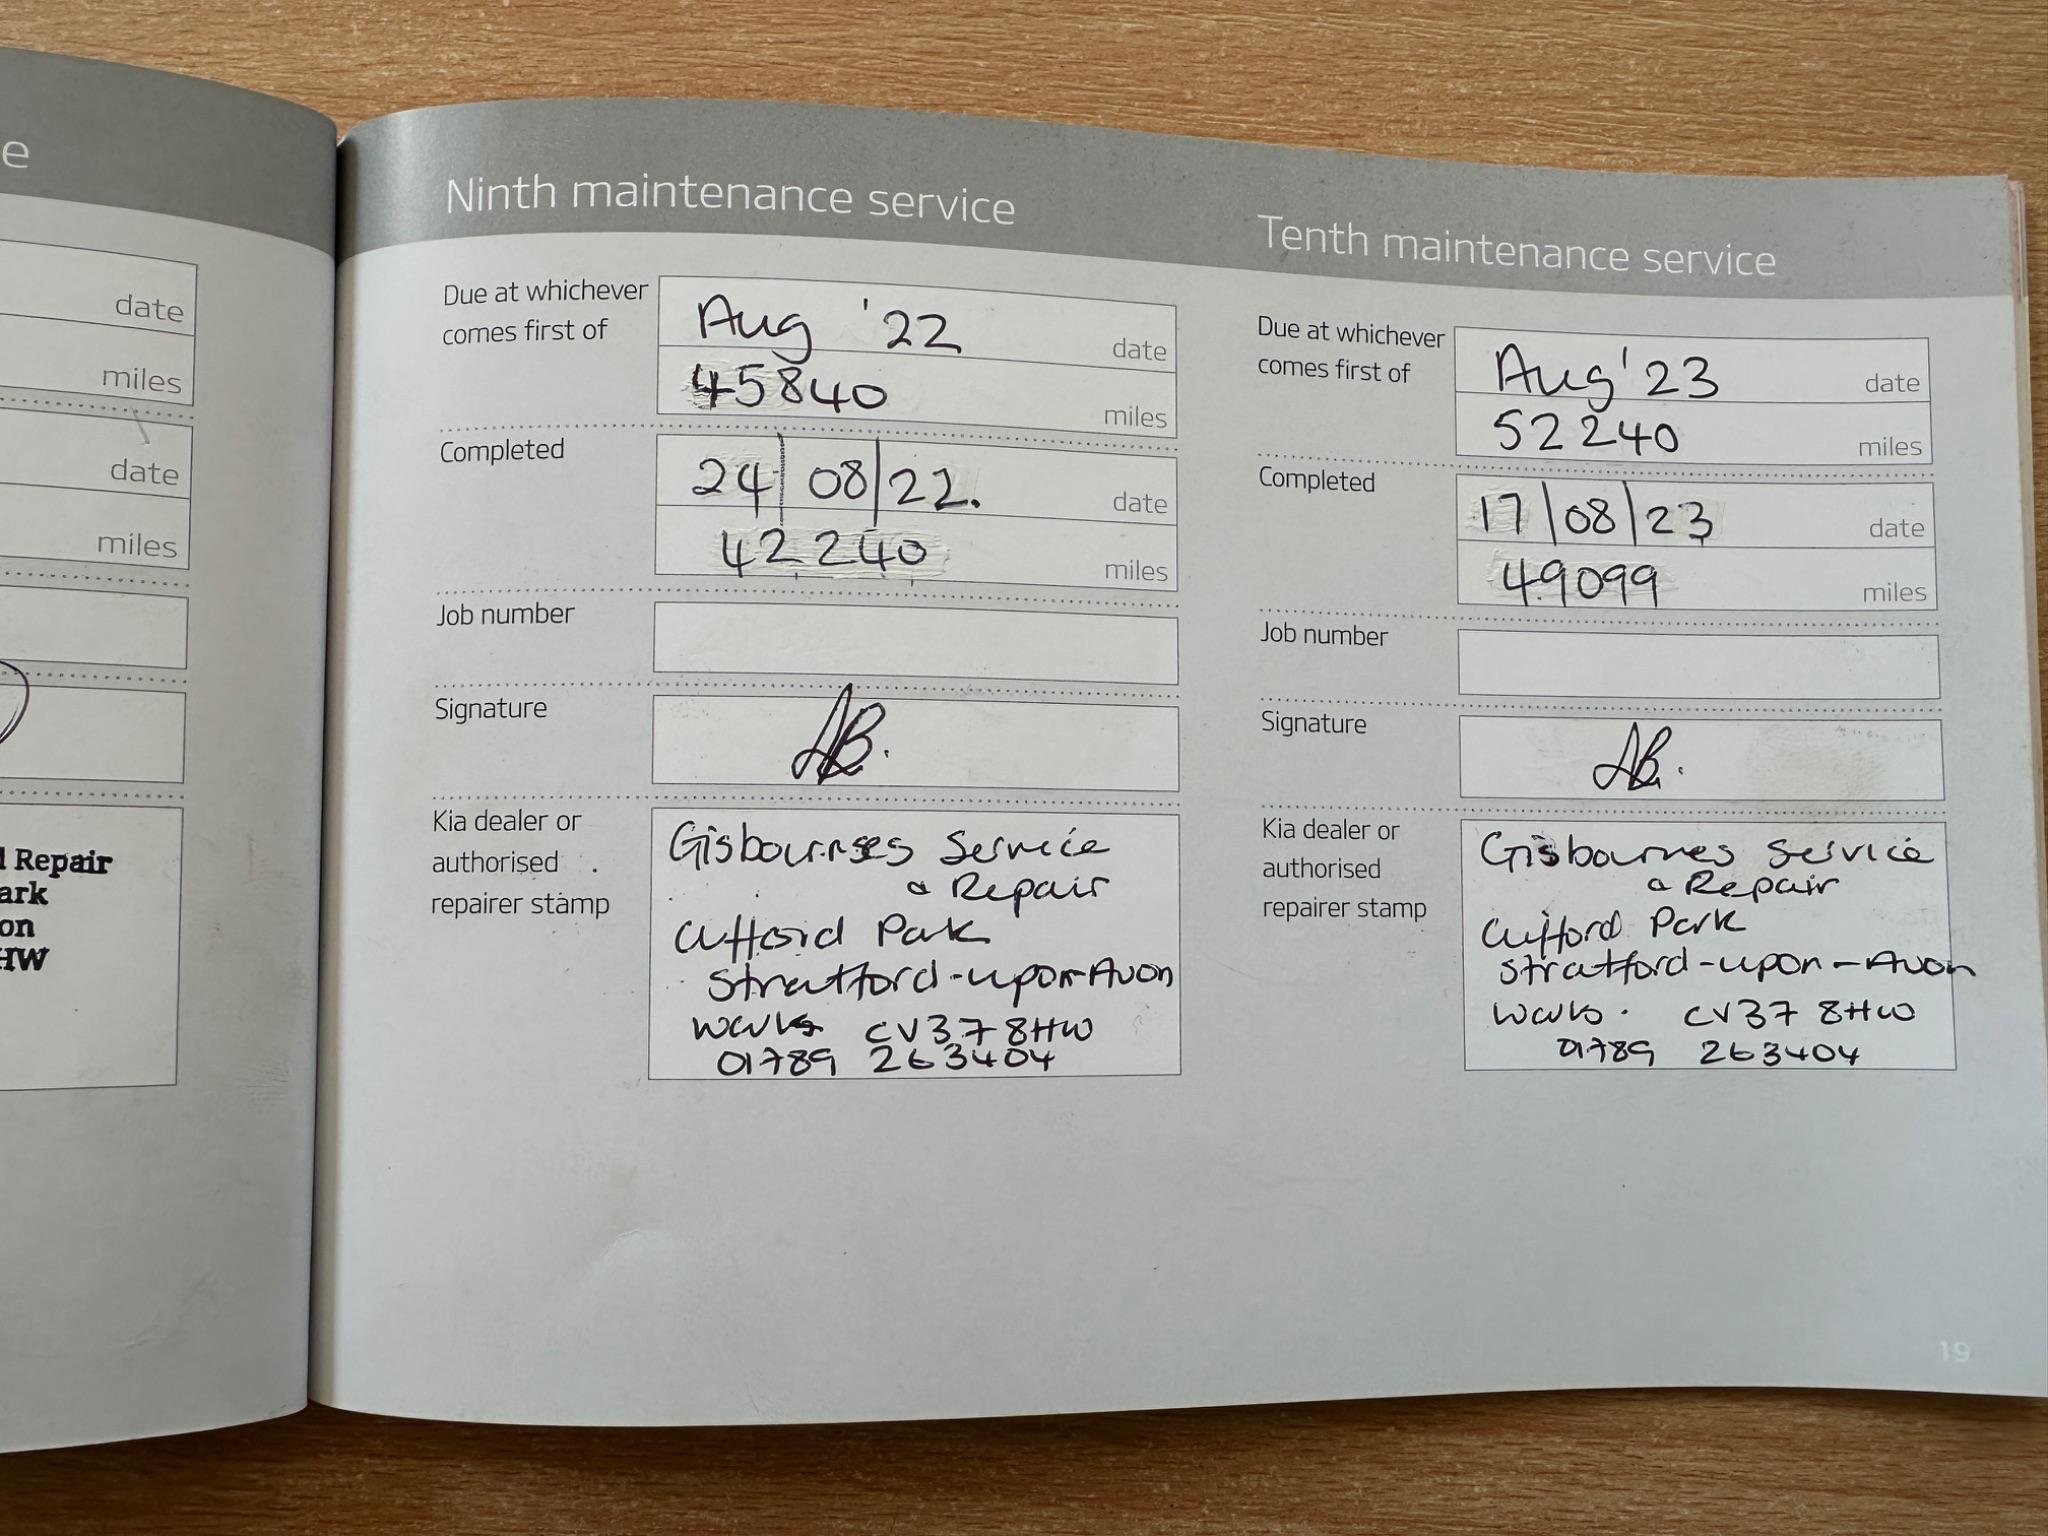 e
date
miles
date
miles
l Repair
ark
on
HW
Ninth maintenance service
Due at whichever
comes first of
Aug '22 date
45840 miles
Completed
24/08/22. date
42240 miles
Job number
Signature
AB.
Kia dealer or
authorised
repairer stamp
Gisbournes Service
& Repair
Clifford Park
Stratford-upon-Avon
Warks CV37 8HW
01789 263404
Tenth maintenance service
Due at whichever
comes first of
Aug '23 date
52240 miles
Completed
17/08/23 date
49099 miles
Job number
Signature
AB.
Kia dealer or
authorised
repairer stamp
Gisbournes Service
& Repair
Clifford Park
Stratford-upon-Avon
Warks. CV37 8HW
01789 263404
19